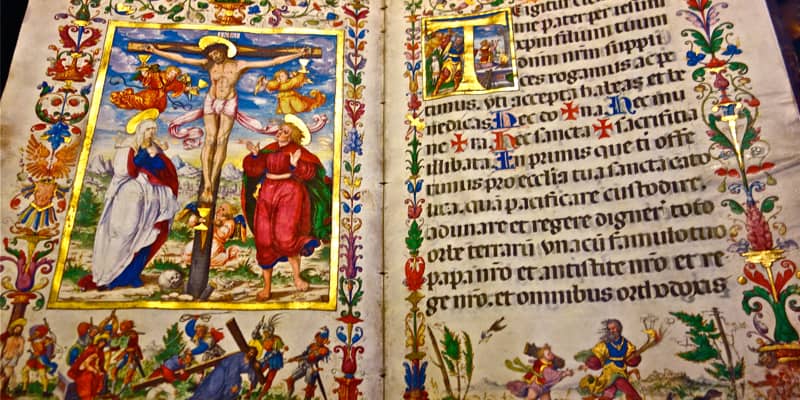 T igitur clem
me pater per iesum
xpm filium tuum
dnm nrm suppli
ces rogamus ac pe
timus. vti accepta habeas et be
nedicas. Hec do ✠ na. Hec mu
ne ✠ ra. Hec sancta ✠ sacrificia
illibata. In primis que tibi offe
rimus pro ecclia tua sancta cato
lica. quā pacificare custodire.
adunare et regere digner toto
orbe terrarū vnacū famulo tuo
papa nro et antistite nro. et re
ge nro. et omnibus orthodoxis